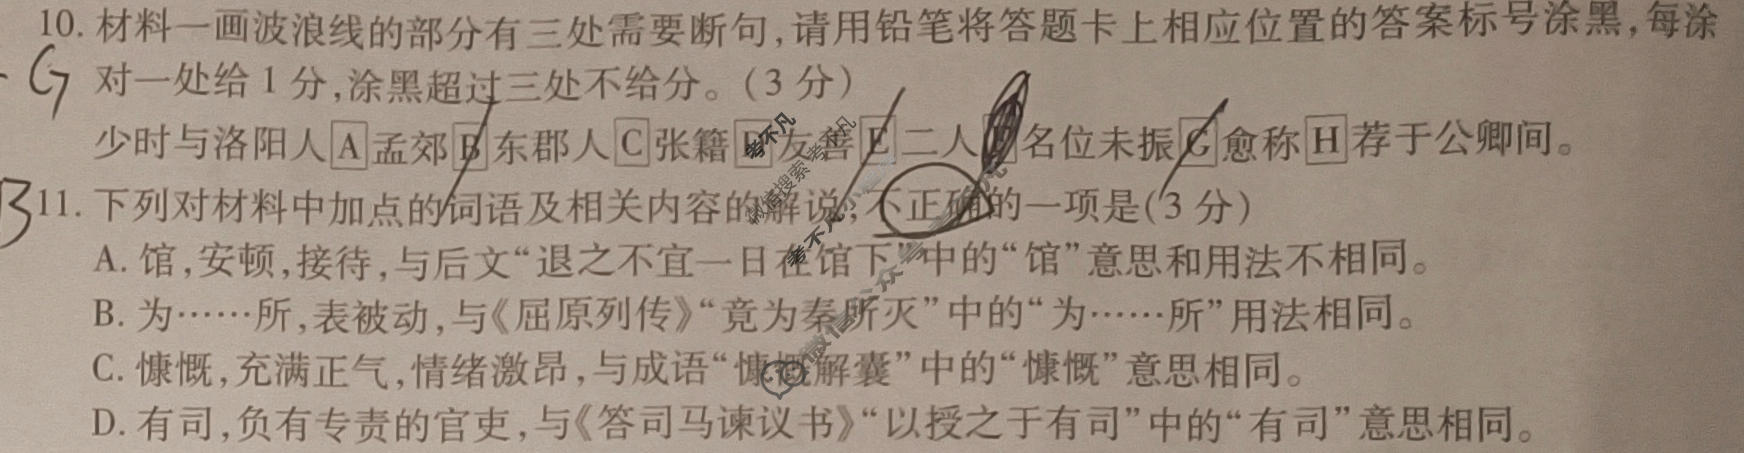 10. 材料一画波浪线的部分有三处需要断句,请用铅笔将答题卡上相应位置的答案标号涂黑,每涂
G 对一处给 1 分,涂黑超过三处不给分。(3 分)
少时与洛阳人 A 孟郊 B 东郡人 C 张籍 D 友善 E 二人 F 名位未振 G 愈称 H 荐于公卿间。
B 11. 下列对材料中加点的词语及相关内容的解说,不正确的一项是(3 分)
A. 馆,安顿,接待,与后文“退之不宜一日在馆下”中的“馆”意思和用法不相同。
B. 为……所,表被动,与《屈原列传》“竟为秦所灭”中的“为……所”用法相同。
C. 慷慨,充满正气,情绪激昂,与成语“慷慨解囊”中的“慷慨”意思相同。
D. 有司,负有专责的官吏,与《答司马谏议书》“以授之于有司”中的“有司”意思相同。